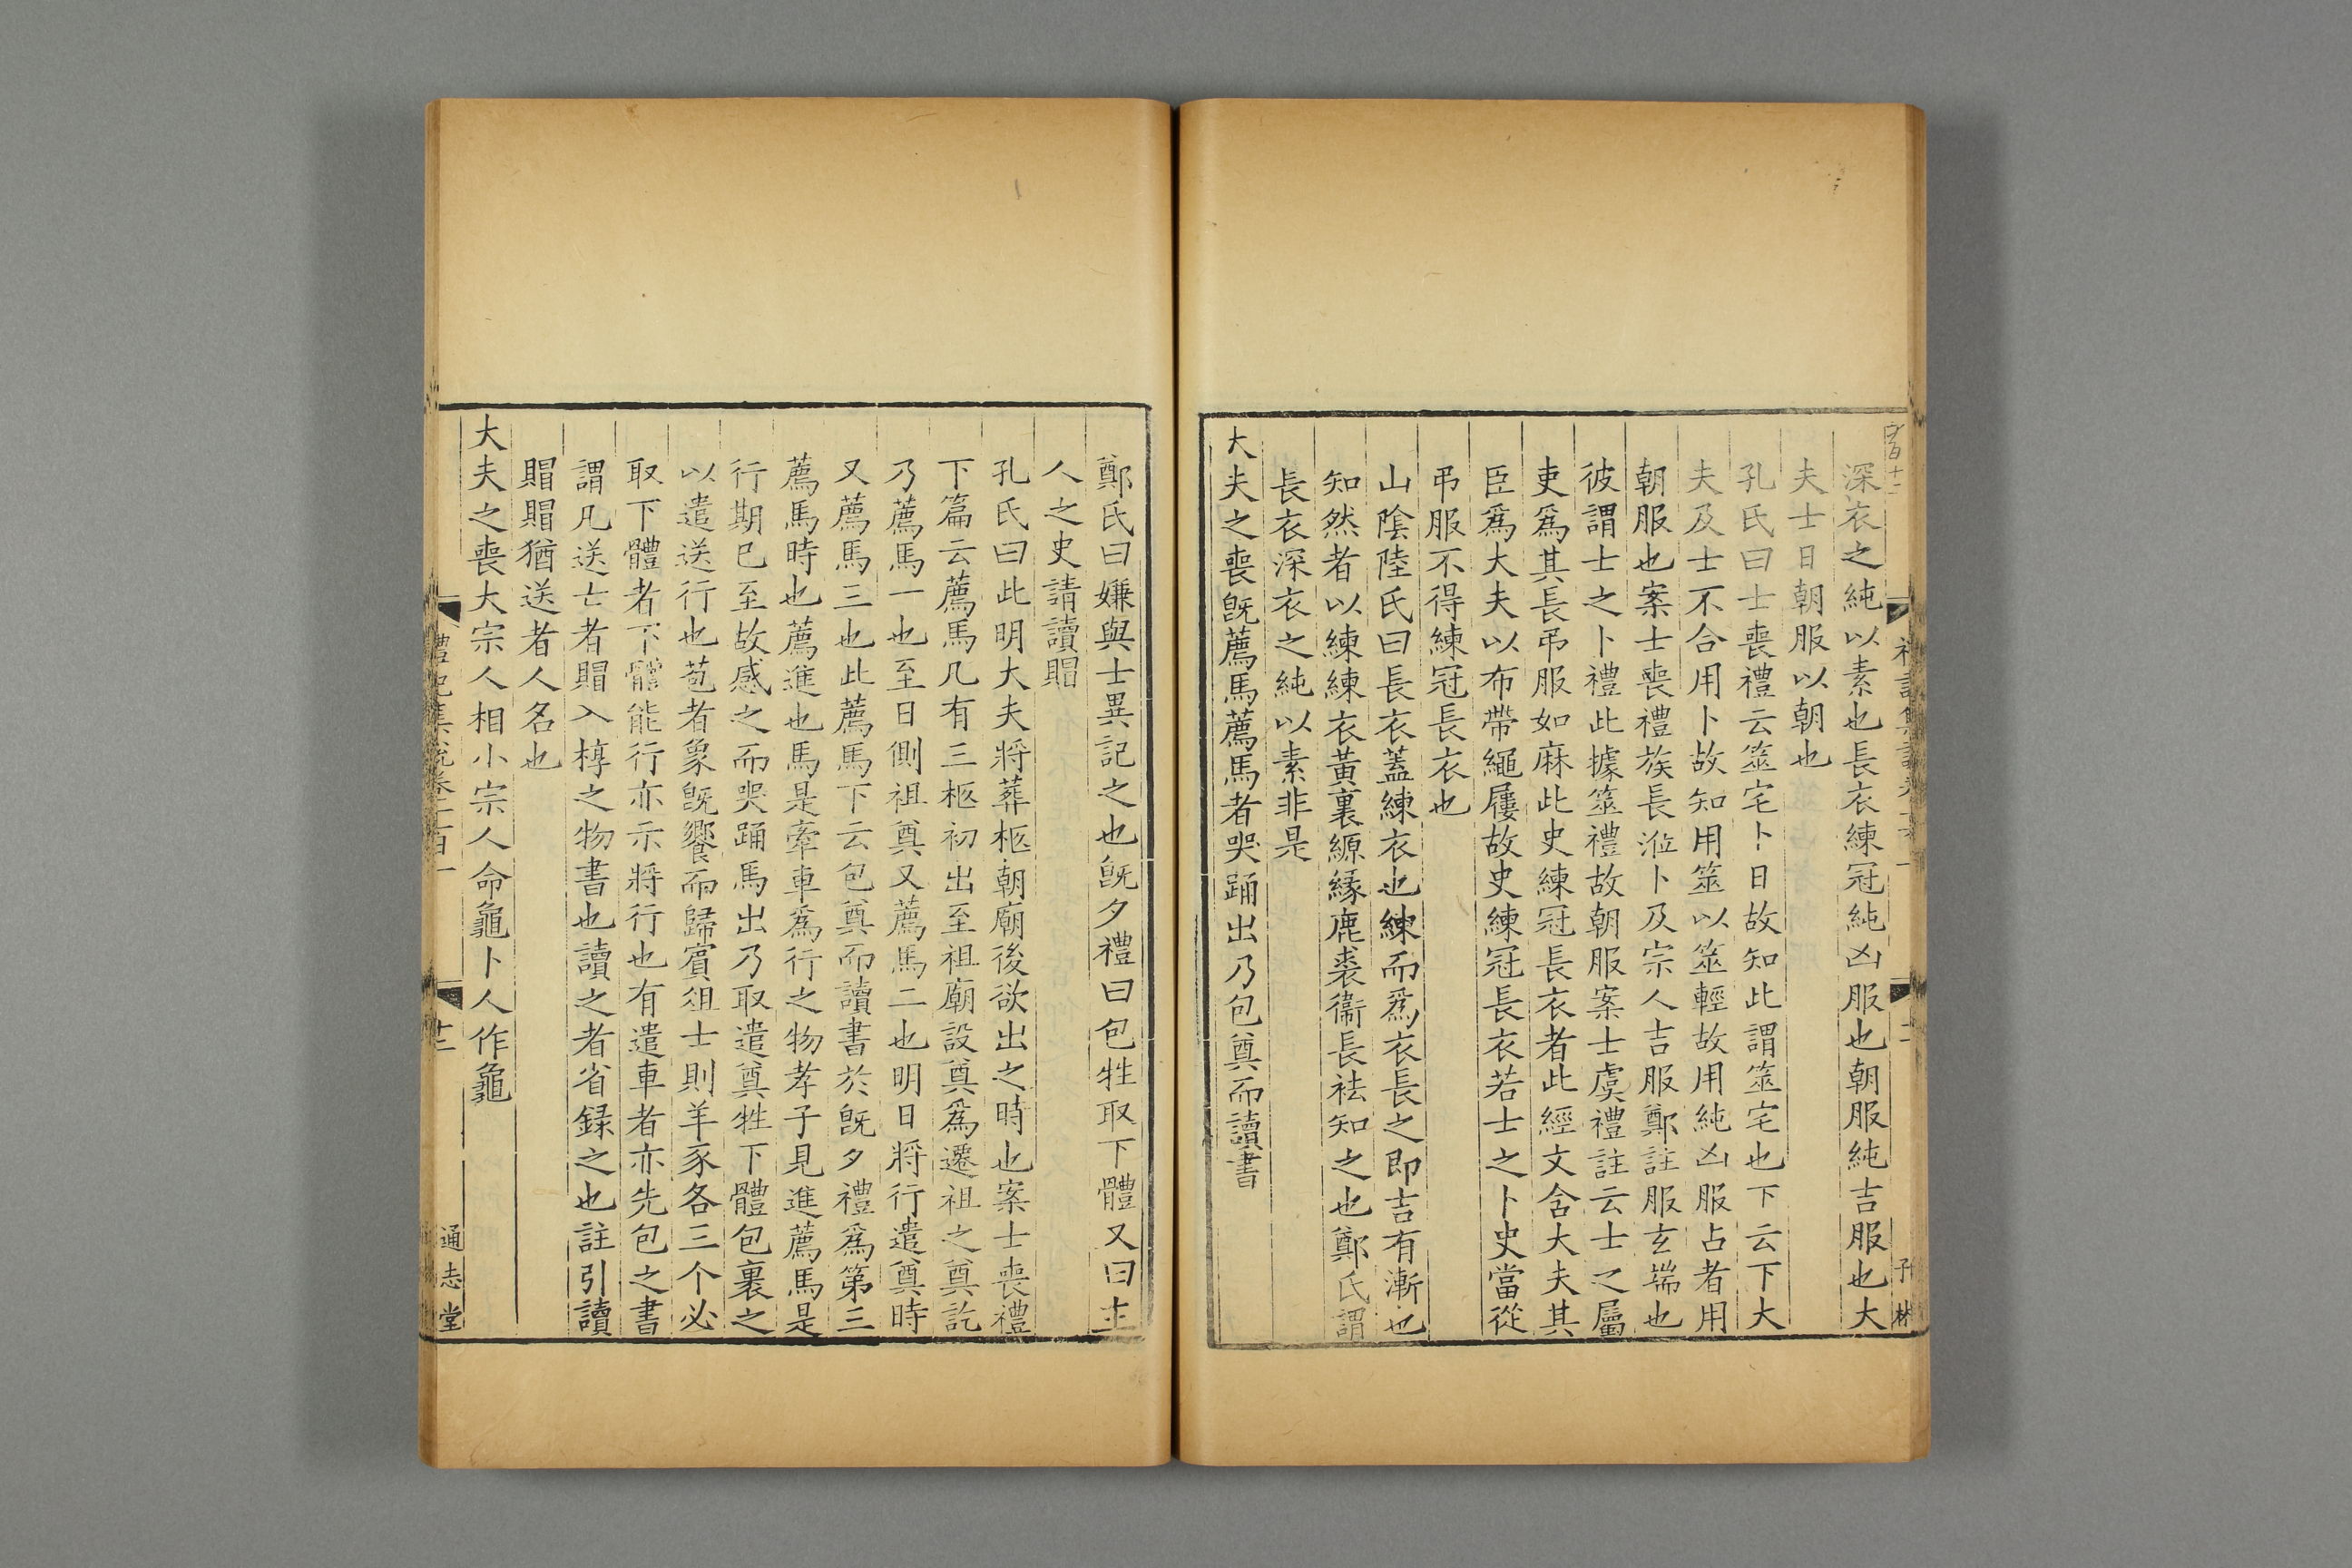 深衣之純以素也長衣練冠純凶服也朝服純吉服也大
夫士日朝服以朝也
孔氏曰士喪禮云筮宅卜日故知此謂筮宅也下云下大
夫及士不合用卜故知用筮以筮輕故用純凶服占者用
朝服也案士喪禮族長涖卜及宗人吉服鄭註服玄端也
彼謂士之卜禮此據筮禮故朝服案士虞禮註云士之屬
吏爲其長弔服如麻此史練冠長衣者此經文含大夫其
臣爲大夫以布帶繩屨故史練冠長衣若士之卜史當從
弔服不得練冠長衣也
山陰陸氏曰長衣蓋練衣也練而爲衣長之即吉有漸也
知然者以練練衣黃裏縓緣鹿裘衡長袪知之也鄭氏謂
長衣深衣之純以素非是
大夫之喪旣薦馬薦馬者哭踊出乃包奠而讀書
鄭氏曰嫌與士異記之也旣夕禮曰包牲取下體又曰主
人之史請讀賵
孔氏曰此明大夫將葬柩朝廟後欲出之時也案士喪禮
下篇云薦馬凡有三柩初出至祖廟設奠爲遷祖之奠訖
乃薦馬一也至日側祖奠又薦馬二也明日將行遣奠時
又薦馬三也此薦馬下云包奠而讀書於旣夕禮爲第三
薦馬時也薦進也馬是牽車爲行之物孝子見進薦馬是
行期已至故感之而哭踊馬出乃取遣奠牲下體包裹之
以遣送行也苞者象旣饗而歸賓俎士則羊豕各三个必
取下體者下體能行亦示將行也有遣車者亦先包之書
謂凡送亡者賵入椁之物書也讀之者省録之也註引讀
賵賵猶送者人名也
大夫之喪大宗人相小宗人命龜卜人作龜
禮記集說卷一百一
十二
通志堂